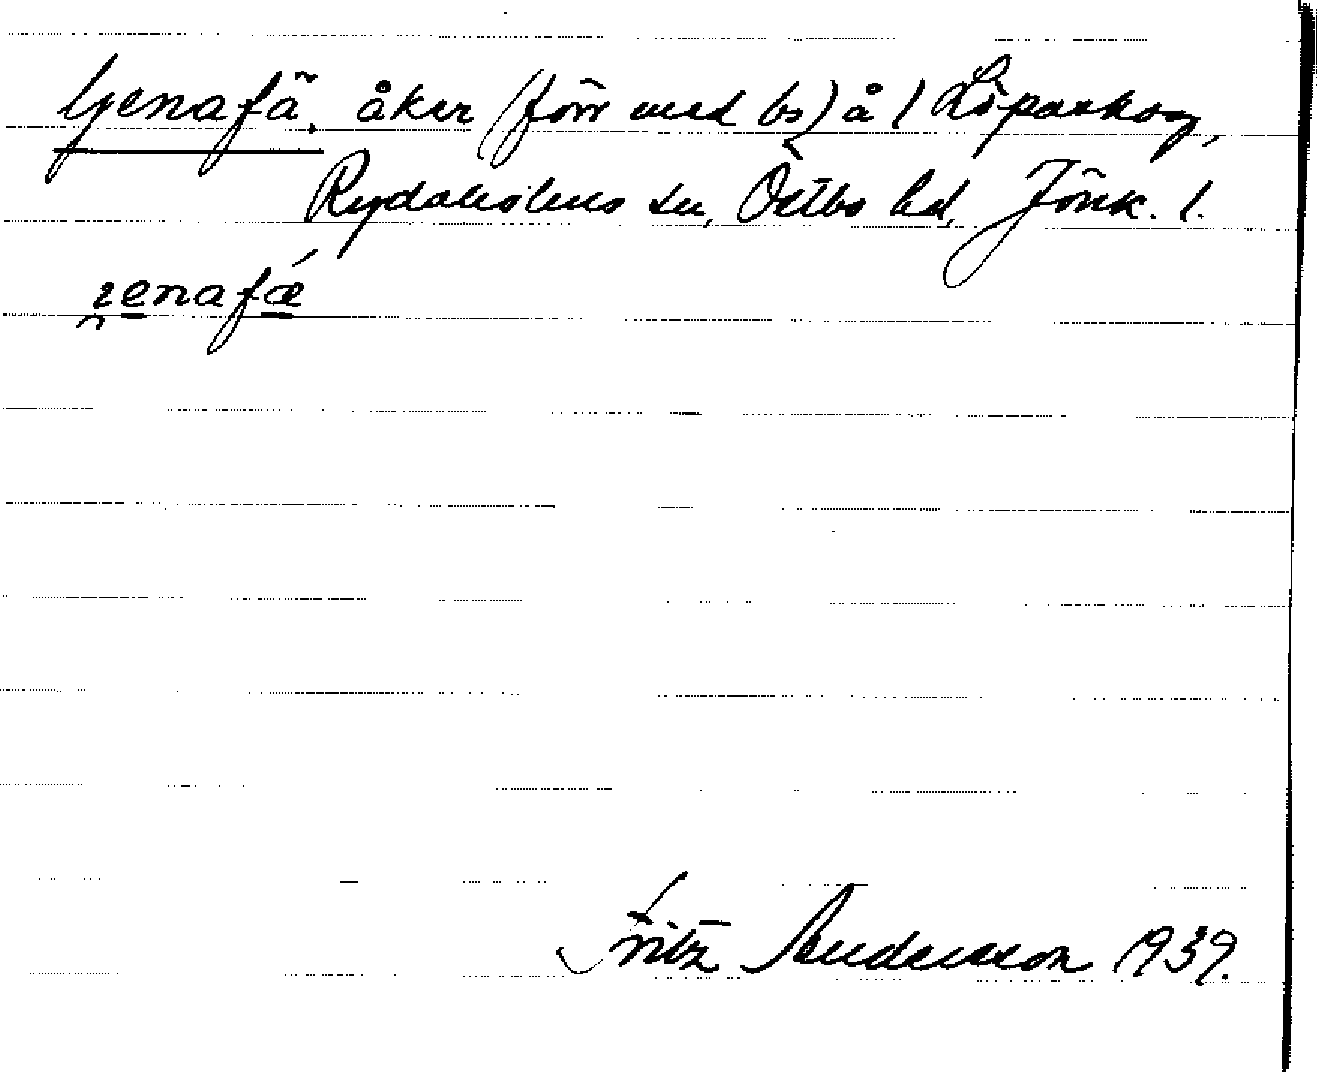 Genafä, åker (förr med bs) å 1 Löpaskog,
Rydaholms sn, Östbo hd, Jönk. l.
Fritz Andersson 1939.